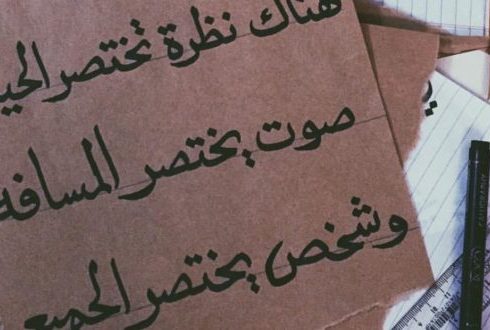 هناك نظرة تختصر الحي
صوت يختصر المسافة
وشخص يختصر الجميع